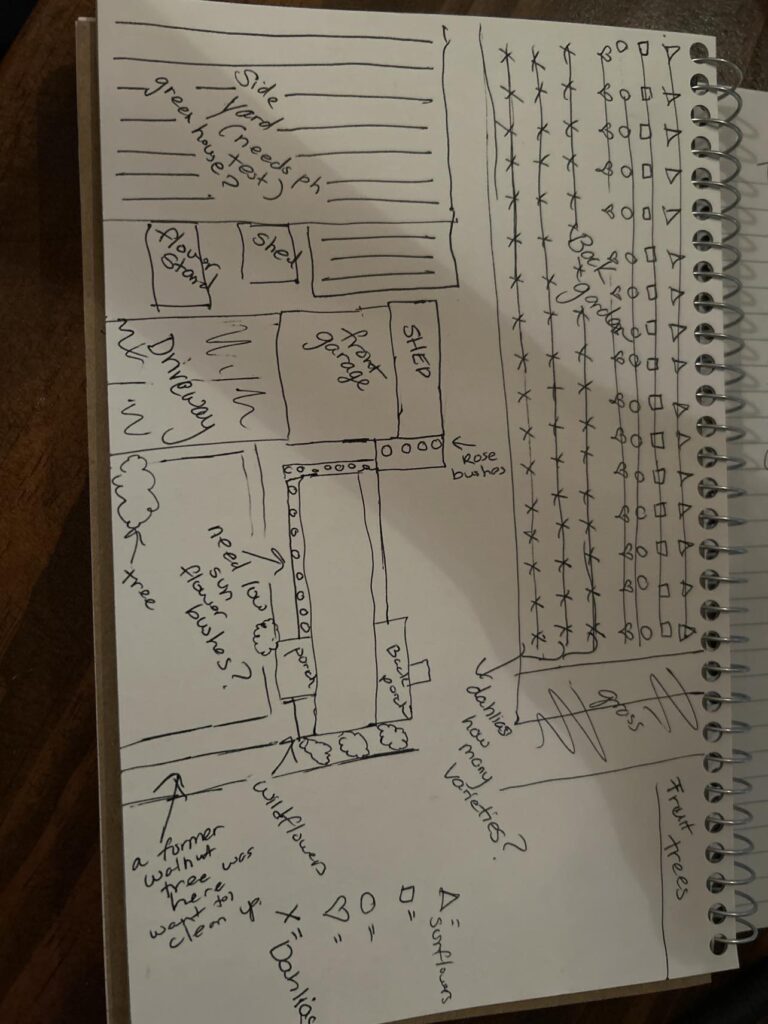 Side
Yard
(needs ph
test)
green house?
flower
stand
shed
Driveway
front
garage
SHED
Rose
bushes
Back
garden
tree
need low
sun
flower
bushes?
porch
Back
porch
wildflowers
dahlias
how many
varieties?
Fruit trees
a former
walnut
tree was
here
△= sunflowers
□=
○=
♡=
X= Dahlias